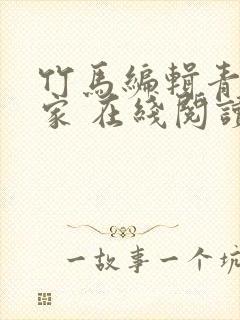 竹馬編輯青
家 在綫閱讀
一故事一个坑